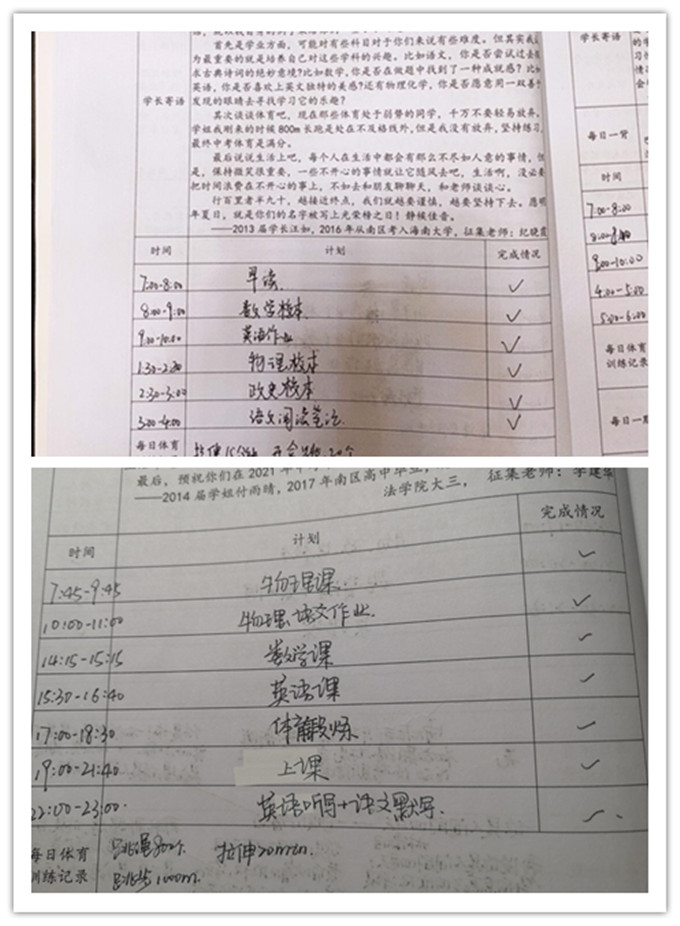 首先是学业方面，可能对有些科目对于你们来说有些难度。但其实我
为最重要的就是培养自己对这些学科的兴趣。比如语文，你是否尝试过去
求古典诗词的绝妙意境?比如数学，你是否在做题中找到了一种成就感? 比如
英语，你是否喜欢上英文独特的美感?还有物理化学，你是否愿意用一双善
发现的眼睛去寻找学习它的乐趣?
学长寄语
其次谈谈体育吧，现在那些体育处于弱势的同学，千万不要轻易放弃，
学姐我刚来的时候 800m 长跑是处在不及格线外，但是我没有放弃，坚持练习，
最终中考体育是满分。
最后说说生活上吧，每个人在生活中都会有那么不尽如人意的事情，但
是，保持微笑很重要，一些不开心的事情就让它随风去吧，生活啊，没必要
把时间浪费在不开心的事上，不如去和朋友聊聊天，和老师谈谈心。
行百里者半九十，越接近终点，我们就越要谨慎，越要坚持下去。愿明
年夏日，就是你们的名字被写上光荣榜之日！静候佳音。
——2013 届学长汪如，2016 年从南区考入海南大学，征集老师：纪晓霞
时间 计划 完成情况
7:00-8:00 早读 ✓
8:00-9:00 数学校本 ✓
9:00-10:00 英语作业 ✓
1:30-2:30 物理校本 ✓
2:30-3:00 政史校本 ✓
3:00-4:00 语文阅读笔记 ✓
每日体育
学长寄语
每日一背
时间
7:00-8:00
8:00-9:00
9:00-10:00
4:00-5:00
5:00-6:00
每日体育
训练记录
每日一
最后，预祝你们在 2021 年
——2014 届学姐付雨晴，2017 年南区高中毕业，
法学院大三， 征集老师：李建华
时间 计划 完成情况
✓
7:45-9:45 物理课
10:00-11:00 物理、语文作业 ✓
14:15-15:15 数学课 ✓
15:30-16:40 英语课 ✓
17:00-18:30 体育锻炼 ✓
19:00-21:40 上课 ✓
22:00-23:00 英语听写+语文默写 ✓
每日体育
训练记录
拉伸20min.
跑步1000m.